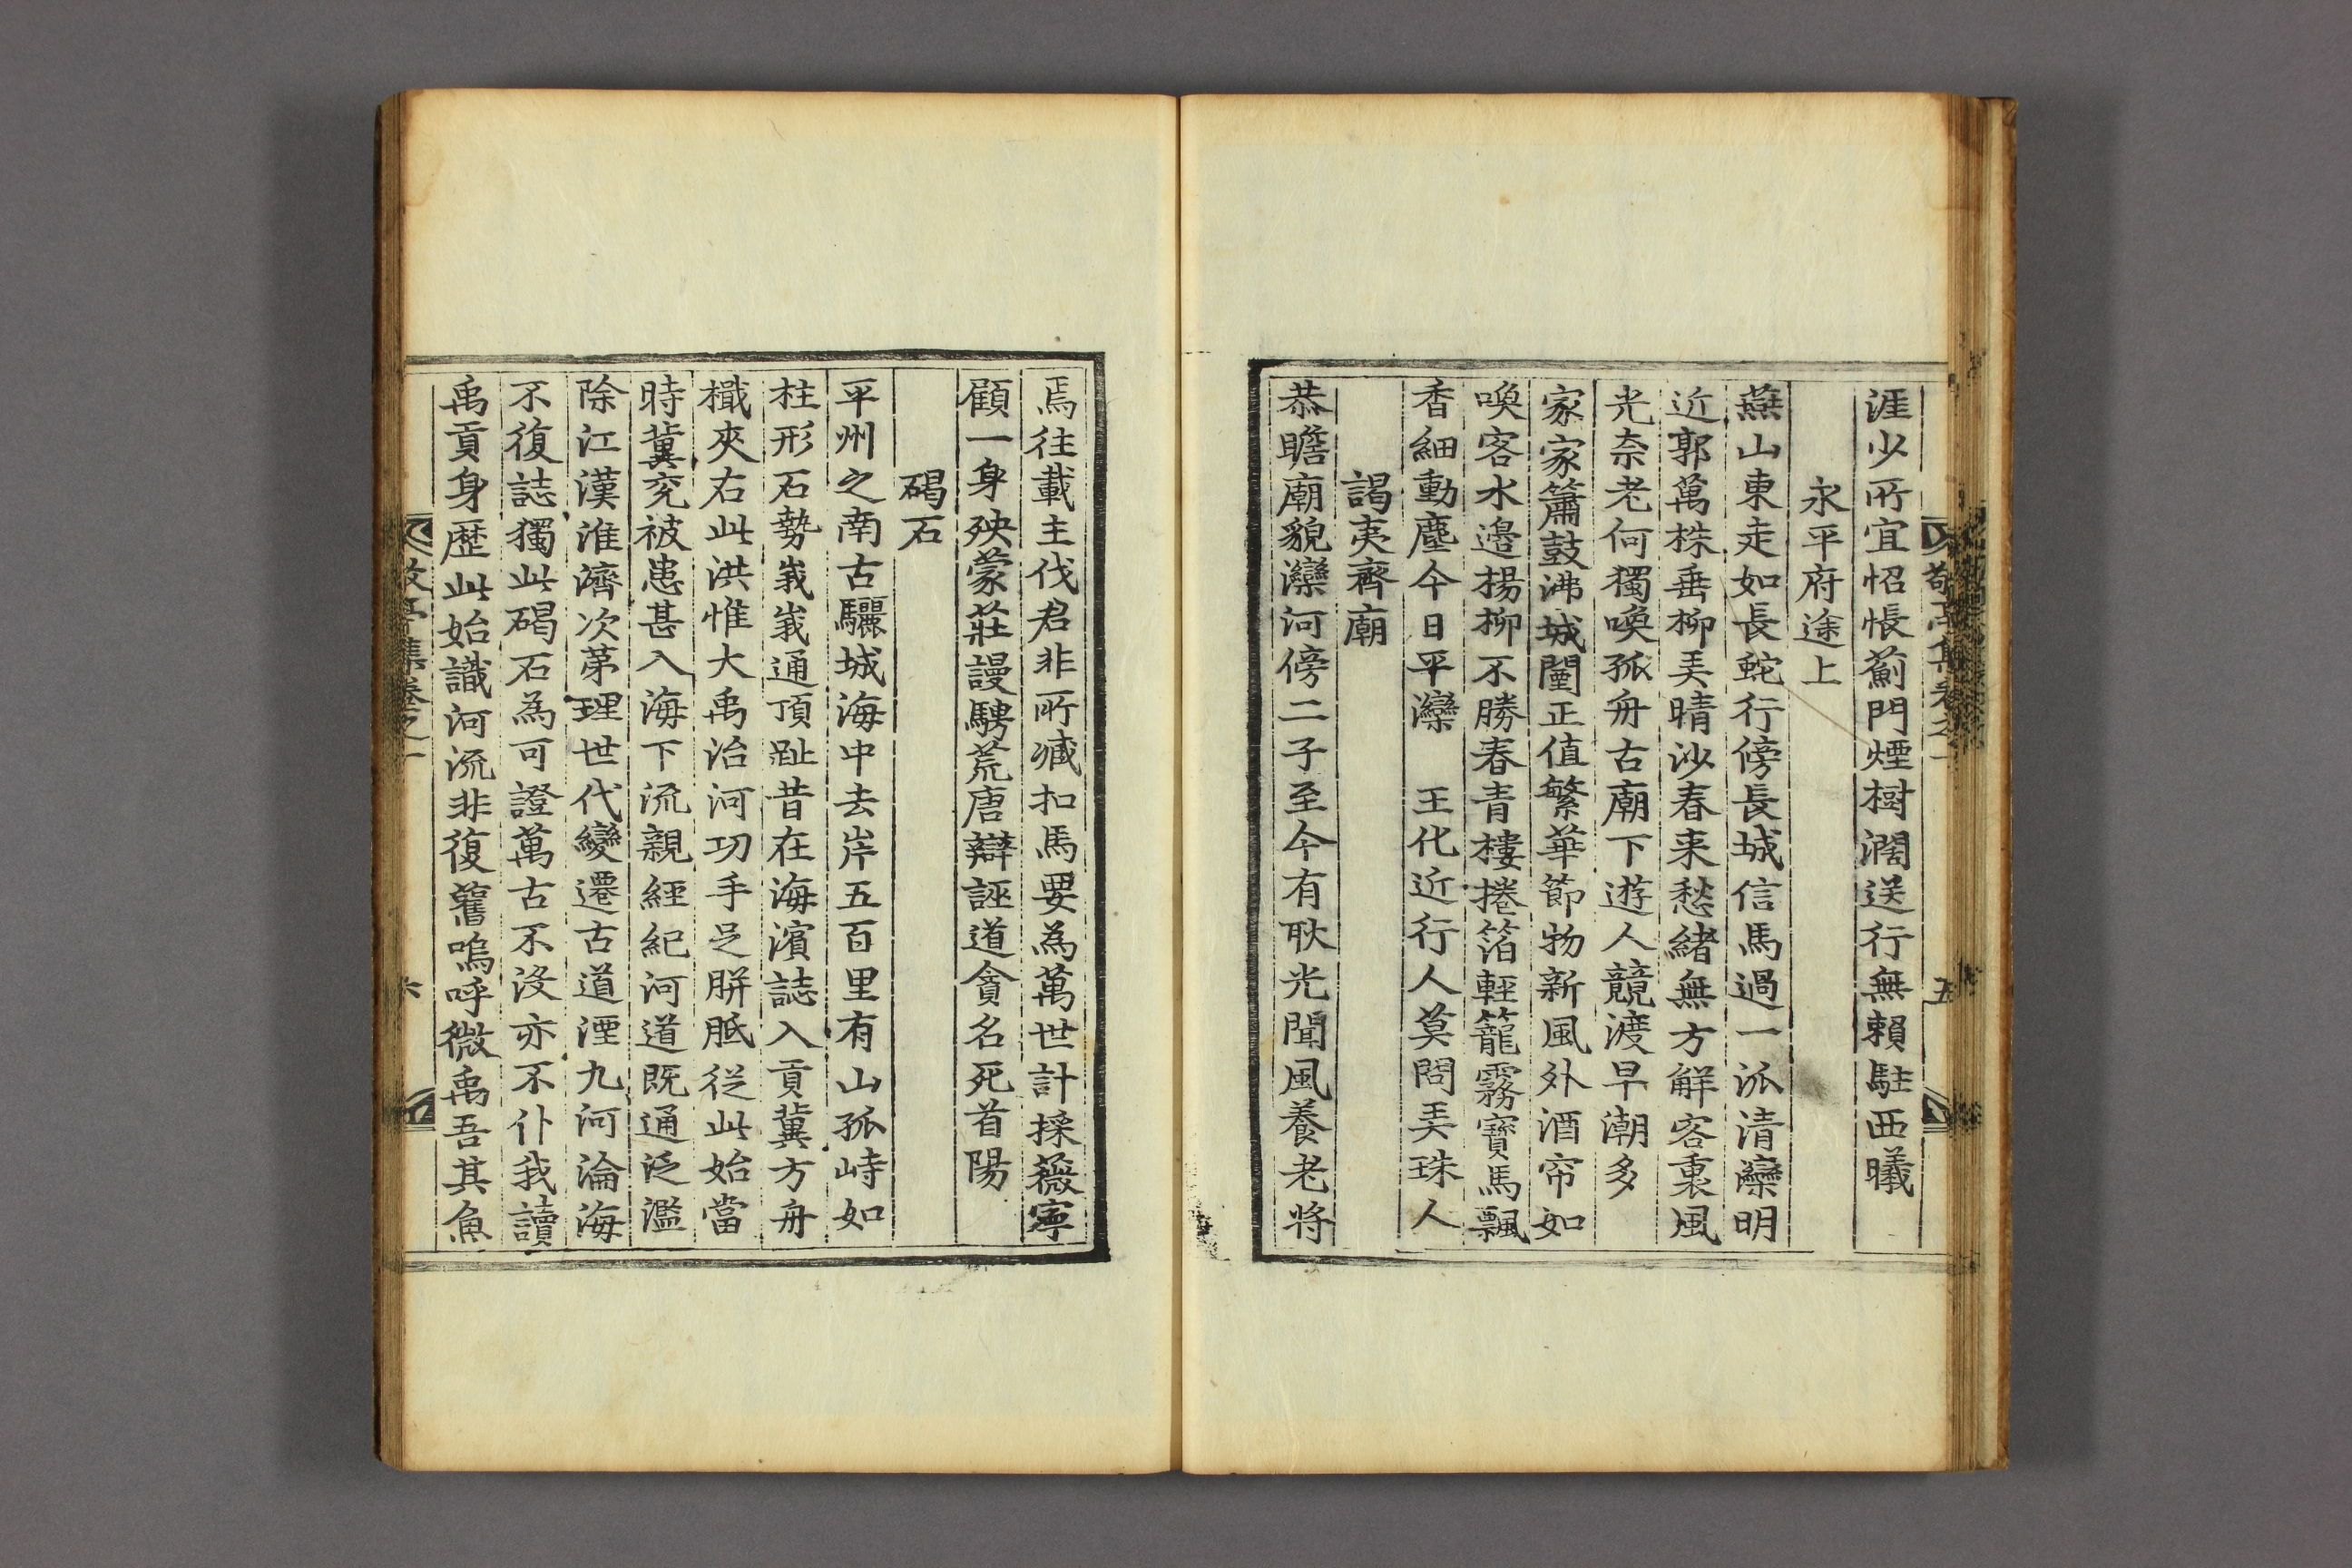 敬亭集卷之一
五
涯少所宜怊悵薊門煙樹濶送行無賴駐西曦
永平府途上
燕山東走如長蛇行傍長城信馬過一派清灤明
近郭萬株垂柳弄晴沙春来愁緖無方觧客裏風
光奈老何獨喚孤舟古廟下遊人競渡早潮多
家家簫鼓沸城闉正值繁華節物新風外酒帘如
喚客水邊楊柳不勝春青樓捲箔輕籠霧寶馬飄
香細動塵今日平灤　王化近行人莫問弄珠人
謁夷齊廟
恭瞻廟貌灤河傍二子至今有耿光聞風養老將
焉往載主伐君非所臧扣馬要為萬世計採薇寧
顧一身殃蒙莊謾騁荒唐辯誣道貪名死首陽
碣石
平州之南古驪城海中去岸五百里有山孤峙如
柱形石勢峩峩通頂趾昔在海濱誌入貢冀方舟
檝夾右此洪惟大禹治河功手足胼胝從此始當
時冀兖被患甚入海下流親經紀河道既通泛濫
除江漢淮濟次苐理世代變遷古道湮九河淪海
不復誌獨此碣石為可證萬古不沒亦不仆我讀
禹貢身歷此始識河流非復舊嗚呼微禹吾其魚
敬亭集卷之一
六